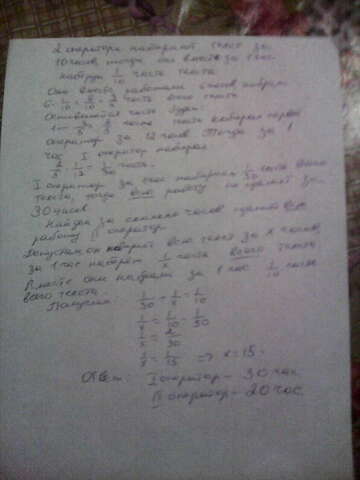 2 оператора набирают текст за
10 часов, тогда они вместе за 1 час
наберут 1/10 часть текста.
Они вместе работали 6 часов
6 · 1/10 = 6/10 = 3/5 часть всего текста
Оставшаяся часть будет:
1 - 3/5 = 2/5 часть текста набирал первый
оператор за 12 часов. Тогда за 1
час I оператор набирал
2/5 : 12 = 1/30 часть.
I оператор за час набирает 1/30 часть всего
текста, тогда всю работу он сделает за
30 часов
Найдем за сколько часов сделает всю
работу II оператор.
Допустим он наберет весь текст за x часов,
за 1 час наберет 1/x часть всего текста
Вместе они набрали за 1 час 1/10 часть
всего текста.
Получим: 1/30 + 1/x = 1/10
1/x = 1/10 - 1/30
1/x = 2/30
1/x = 1/15 => x = 15
Ответ: I оператор - 30 час
II оператор - 20 час